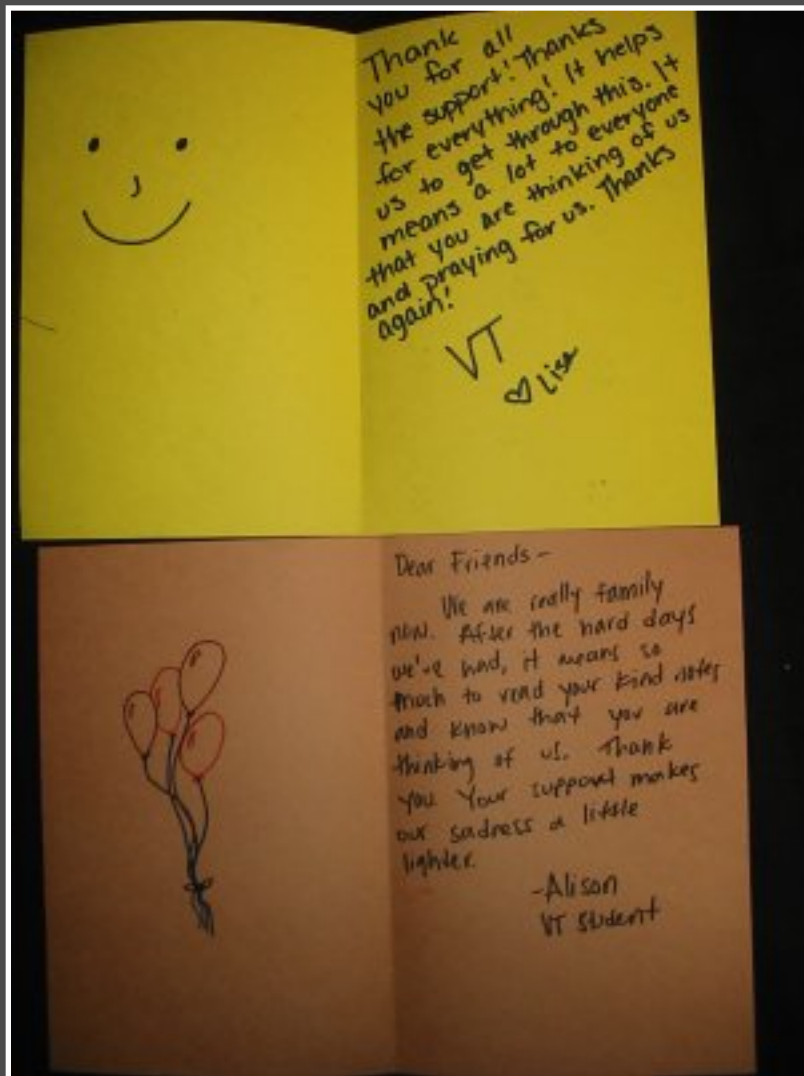 Thank
you for all
the support! Thanks
for everything! It helps
us to get through this. It
means a lot to everyone
that you are thinking of us
and praying for us. Thanks
again!
VT
♡ Lisa
Dear Friends -
We are really family
now. After the hard days
we've had, it means so
much to read your kind notes
and know that you are
thinking of us. Thank
you. Your support makes
our sadness a little
lighter.
-Alison
VT student